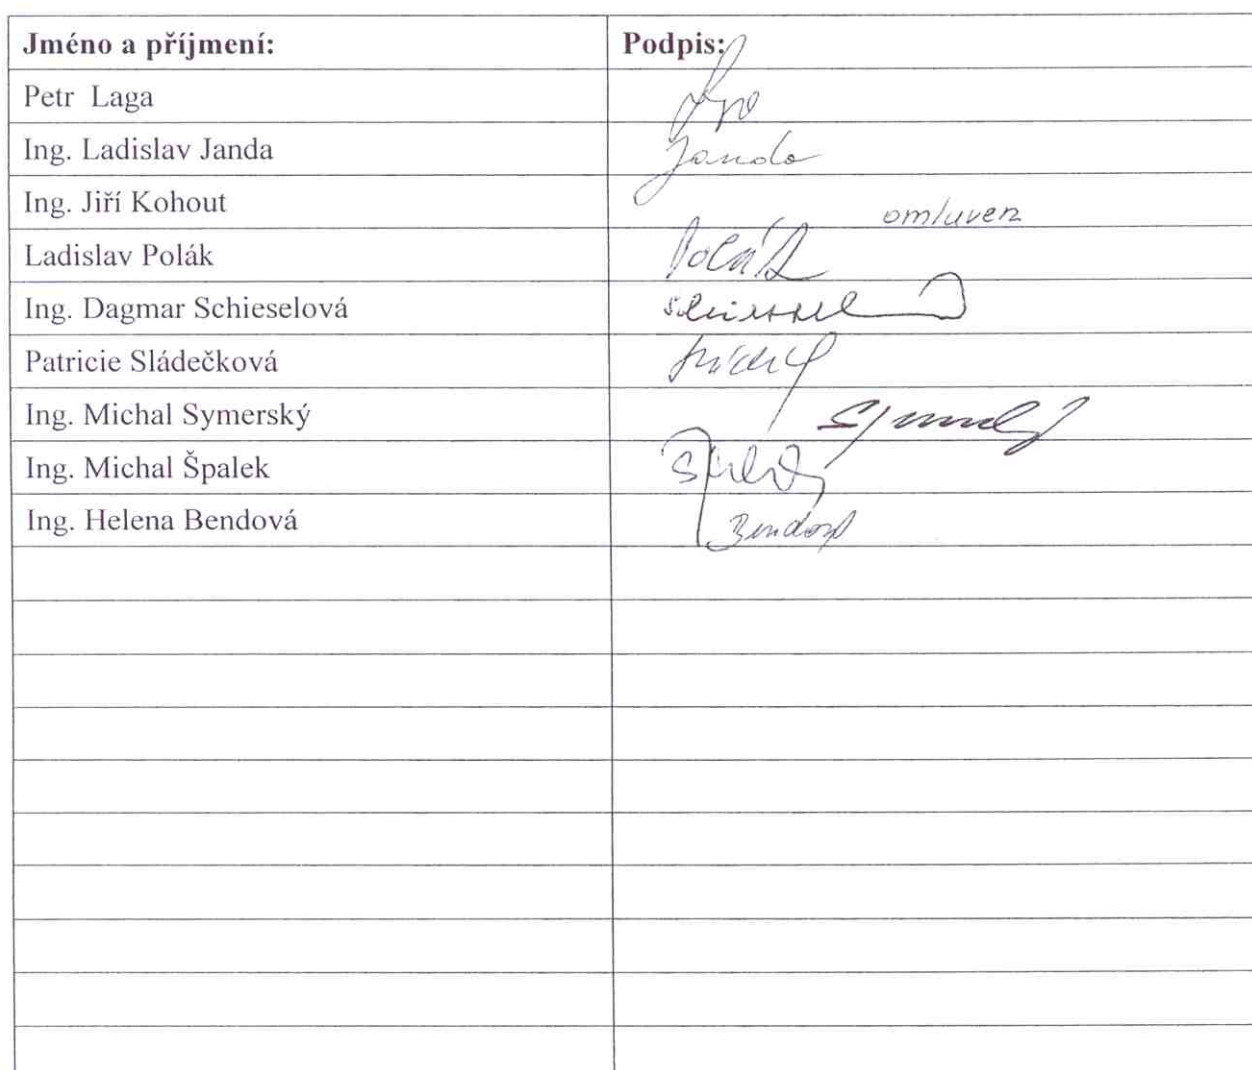 Jméno a příjmení: Podpis:
Petr Laga
Ing. Ladislav Janda Janda
Ing. Jiří Kohout omluven
Ladislav Polák Polák
Ing. Dagmar Schieselová
Patricie Sládečková
Ing. Michal Symerský
Ing. Michal Špalek
Ing. Helena Bendová